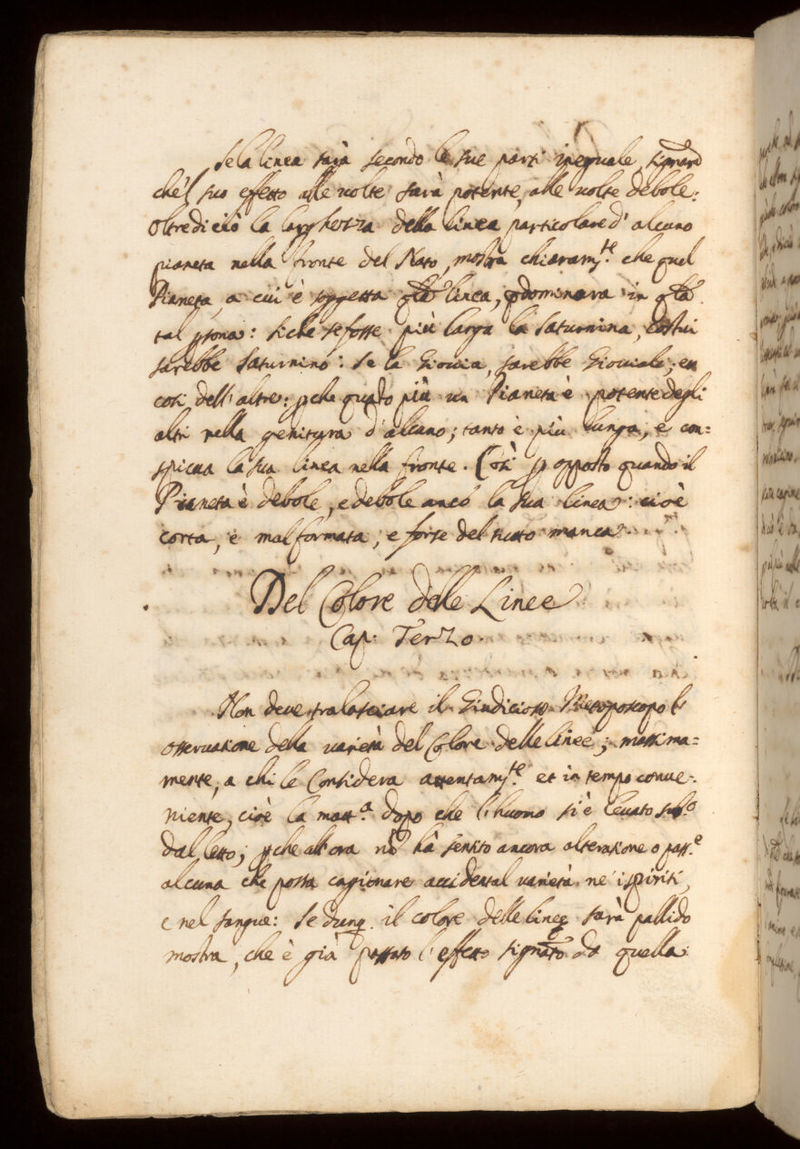 Se la linea sarà secondo le sue parti ineguale,
ch'el suo effetto alle uolte sarà potente, alle uolte debole:
Oltredeciò la larghezza della linea particolare d'alcuno
pianeta nella fronte del Nato, mostra chiaram.te che quel
Pianeta, a cui è soggetta q̃ta linea, p̱dominara in q̃ta
tal p̱sona: siche se fosse più larga la Saturnina, costui
sarebbe Saturnino: se la Giouia, sarebbe Giouiale; et
cosi dell'altre: p̱che quãto più un Pianeta è potente degli
altri nella genitura d'alcuno; tanto è più lunga, e con=
spicua la sua linea nella fronte. Così p̱ opposto quando il
Pianeta è debole, e debole ancó la sua linea: cioè
corta, e mal formata, e forse del tutto manca.
Del Colore delle Linee
Cap: Terzo.
Non deue tralasciare il Giudicioso Metoposcopo l'
osseruatione della uarietà del Colore delle linee; massima=
mente, a chi le Considera attentam.te et in tempo conue=
niente, cioè la matt.a dopo che l'huomo si è leuato sub.o
dal letto; p̱che all'ora nõ hà sentito ancora alteratione o pass.e
alcuna che possa cagionare accidental uarietà ne' ispiriti,
e nel sangue: Se dunq. il colore delle linee sarà pallido
mostra, che è già passato l'effetto signato da quella